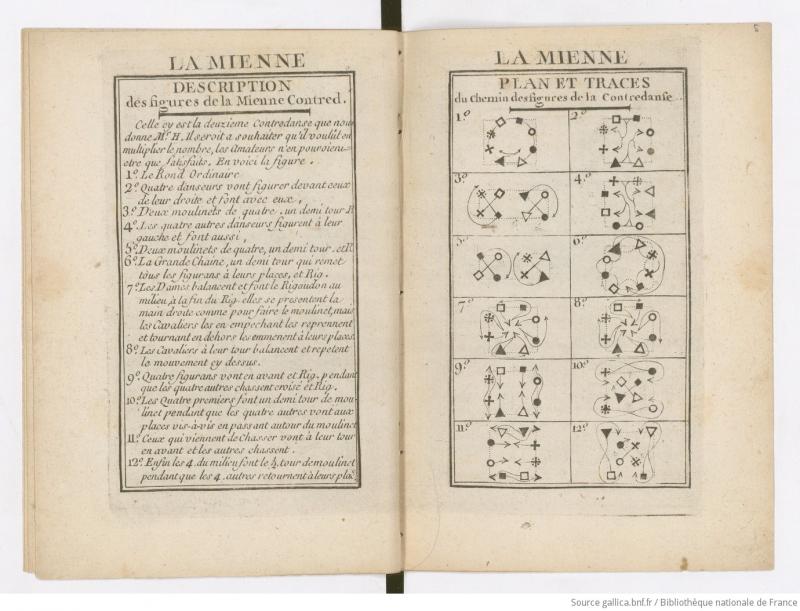 LA MIENNE
DESCRIPTION
des figures de la Mienne Contred.
Celle cy est la deuxieme Contredanse que nous
donne Mr. H, Il seroit a souhaiter qu'il voulût en
multiplier le nombre, les Amateurs n'en pouroient
etre que satisfaits. En voici la figure.
1º. Le Rond Ordinaire
2º. Quatre danseurs vont figurer devant ceux
de leur droite et font avec eux,
3º. Deux moulinets de quatre. un demi tour R
4º. Les quatre autres danseurs figurent à leur
gauche et font aussi,
5º. Deux moulinets de quatre, un demi tour. et R
6º. La Grande Chaine, un demi tour qui remet
tous les figurans à leurs places, et Rig.
7º. Les Dames balancent et font le Rigaudon au
milieu, à la fin du Rig. elles se presentent la
main droite comme pour faire le moulinet, mais
les Cavaliers les en empechant les reprennent
et tournant en dehors les emmenent à leurs places.
8º. Les Cavaliers à leur tour balancent et repetent
le mouvement cy dessus.
9º. Quatre figurans vont en avant et Rig. pendant
que les quatre autres chassent croisé et Rig.
10º. Les Quatre premiers font un demi tour de mou-
linet pendant que les quatre autres vont aux
places vis-à-vis en passant autour du moulinet
11º. Ceux qui viennent de Chasser vont à leur tour
en avant et les autres chassent.
12º. Enfin les 4. du milieu font le ½ tour de moulinet
pendant que les 4. autres retournent à leurs pla.
LA MIENNE
PLAN ET TRACES
du Chemin des figures de la Contredanse.
1º.
2º.
3º.
4º.
5º.
6º.
7º.
8º.
9º.
10º.
11º.
12º.
Source gallica.bnf.fr / Bibliothèque nationale de France